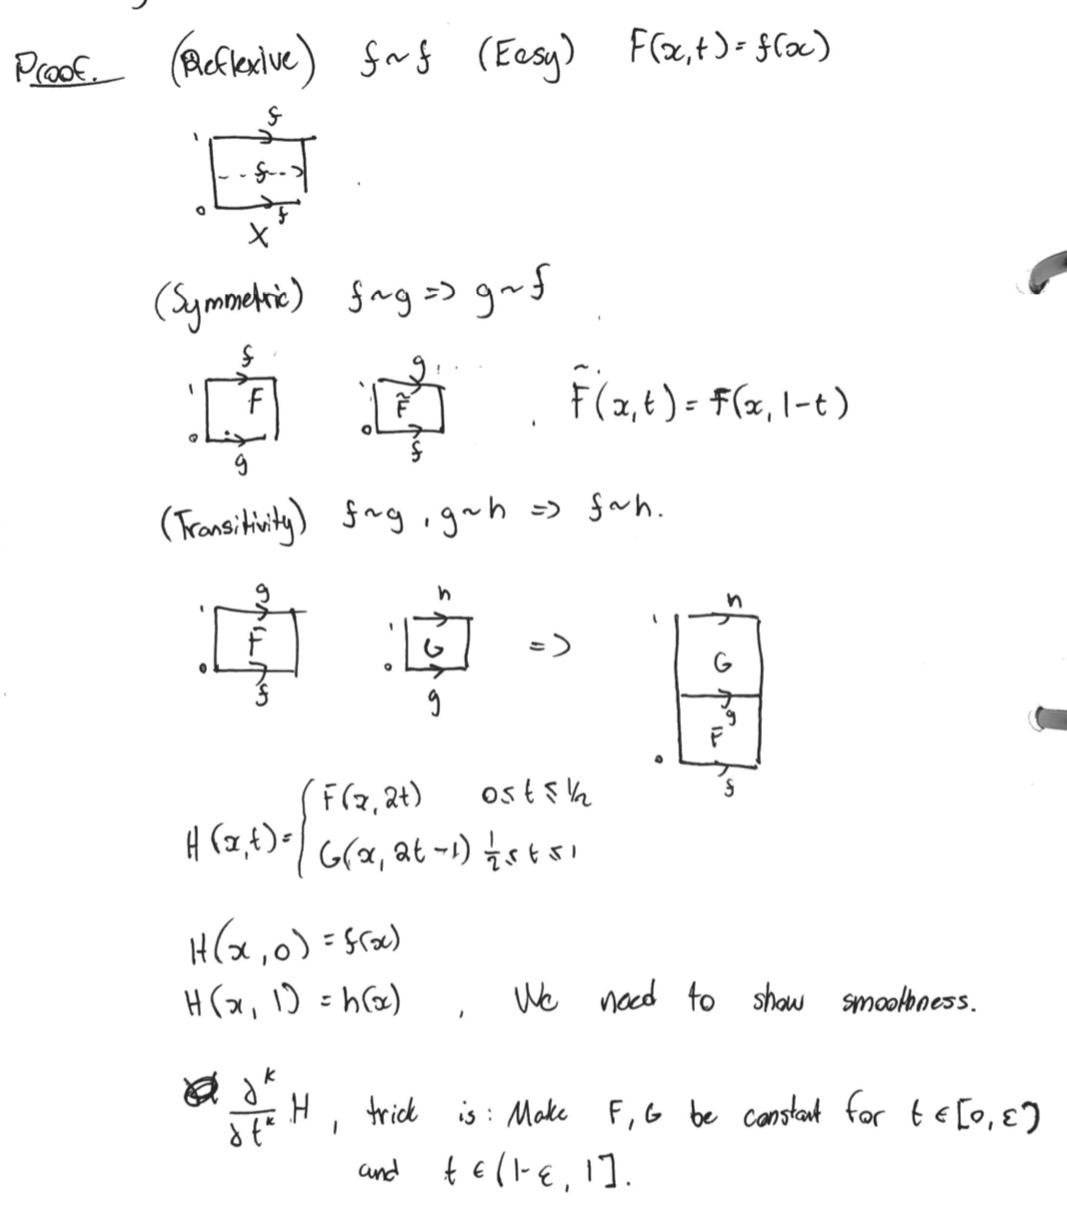 Proof. (Reflexive) f ~ f (Easy) F(x,t) = f(x)
f
1
- - f - - >
0
f
X
(Symmetric) f ~ g => g ~ f
f g
1 F 1 F̃ F̃(x,t) = F(x, 1-t)
0 0
g f
(Transitivity) f ~ g , g ~ h => f ~ h.
g h h
1 F 1 G => 1 G
0 0 g
f g F
0
f
H(x,t) = { F(x, 2t) 0 ≤ t ≤ 1/2
G(x, 2t-1) 1/2 ≤ t ≤ 1
H(x,0) = f(x)
H(x,1) = h(x) , We need to show smoothness.
∂^k/∂t^k H , trick is: Make F, G be constant for t ∈ [0, ε)
and t ∈ (1-ε, 1].